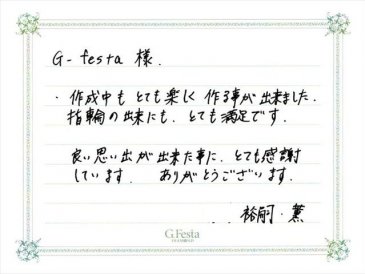 G-festa 様.
・作成中も とても楽しく 作る事が出来ました.
指輪の出来にも、とても満足です.
良い思い出が出来た事に、とても感謝
しています. ありがとうございます.
裕嗣・薫
G.Festa